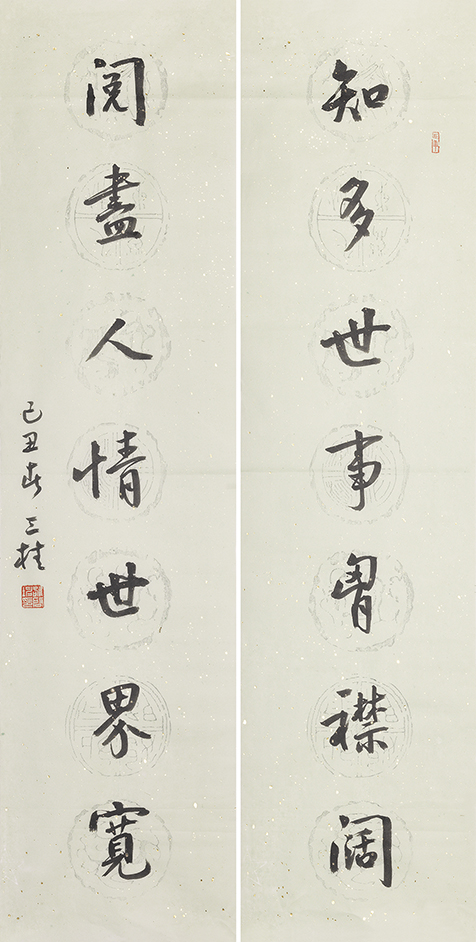 知多世事胸襟阔
阅尽人情世界寬
己丑春 三桂